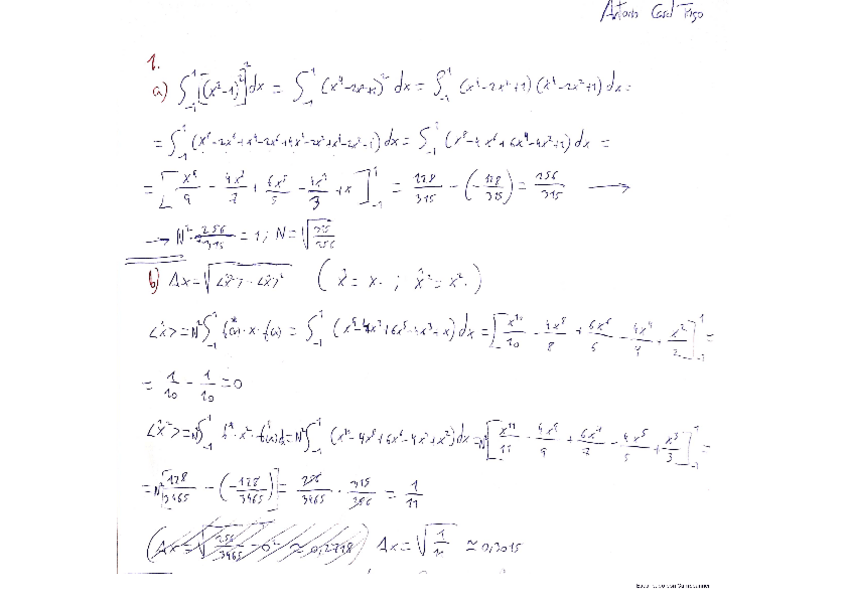 1.
a) ∫₋₁¹ [(x²-1)²]² dx = ∫₋₁¹ (x⁴-2x²+1)² dx = ∫₋₁¹ (x⁴-2x²+1)(x⁴-2x²+1) dx =
= ∫₋₁¹ (x⁸-2x⁶+x⁴-2x⁶+4x⁴-2x²+x⁴-2x²+1) dx = ∫₋₁¹ (x⁸-4x⁶+6x⁴-4x²+1) dx =
= [x⁹/9 - 4x⁷/7 + 6x⁵/5 - 4x³/3 + x]₋₁¹ = 128/315 - (-128/315) = 256/315 →
→ N² · 256/315 = 1 ; N = √(315/256)
b) Δx = √(<x̂²> - <x̂>²) ( x̂ = x· ; x̂² = x²· )
<x̂> = N² ∫₋₁¹ f*(x) · x · f(x) = ∫₋₁¹ (x⁹-4x⁷+6x⁵-4x³+x) dx = [x¹⁰/10 - 4x⁸/8 + 6x⁶/6 - 4x⁴/4 + x²/2]₋₁¹ =
= 1/10 - 1/10 = 0
<x̂²> = N² ∫₋₁¹ f* · x² · f(x) dx = N² ∫₋₁¹ (x¹⁰-4x⁸+6x⁶-4x⁴+x²) dx = N² [x¹¹/11 - 4x⁹/9 + 6x⁷/7 - 4x⁵/5 + x³/3]₋₁¹ =
= N² [128/3465 - (-128/3465)] = 256/3465 · 315/256 = 1/11
(Δx = √(256/3465 - 0²) ≈ 0,2718) Δx = √(1/11) ≈ 0,3015